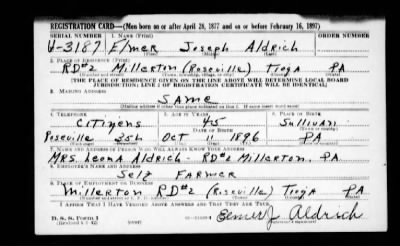 REGISTRATION CARD—(Men born on or after April 28, 1877 and on or before February 16, 1897)
SERIAL NUMBER 1. NAME (Print) ORDER NUMBER
U-3187 Elmer Joseph Aldrich
2. PLACE OF RESIDENCE (Print)
RD#2 Millerton (Roseville) Tioga PA
(Number and street) (Town, township, village, or city) (County) (State)
[THE PLACE OF RESIDENCE GIVEN ON THE LINE ABOVE WILL DETERMINE LOCAL BOARD
JURISDICTION; LINE 2 OF REGISTRATION CERTIFICATE WILL BE IDENTICAL]
3. MAILING ADDRESS
SAME
(Mailing address if other than place indicated on line 2. If same insert word same)
4. TELEPHONE 5. AGE IN YEARS 6. PLACE OF BIRTH
Citizens 45 Sullivan
DATE OF BIRTH
Roseville Oct 11 1896 PA
7. NAME AND ADDRESS OF PERSON WHO WILL ALWAYS KNOW YOUR ADDRESS
Mrs. Leona Aldrich - RD#2 Millerton, PA
8. EMPLOYER'S NAME AND ADDRESS
Self Farmer
9. PLACE OF EMPLOYMENT OR BUSINESS
Millerton RD#2 (Roseville) Tioga PA
(Number and street or R. F. D. number) (Town) (County) (State)
I AFFIRM THAT I HAVE VERIFIED ABOVE ANSWERS AND THAT THEY ARE TRUE.
D. S. S. Form 1
Elmer J Aldrich